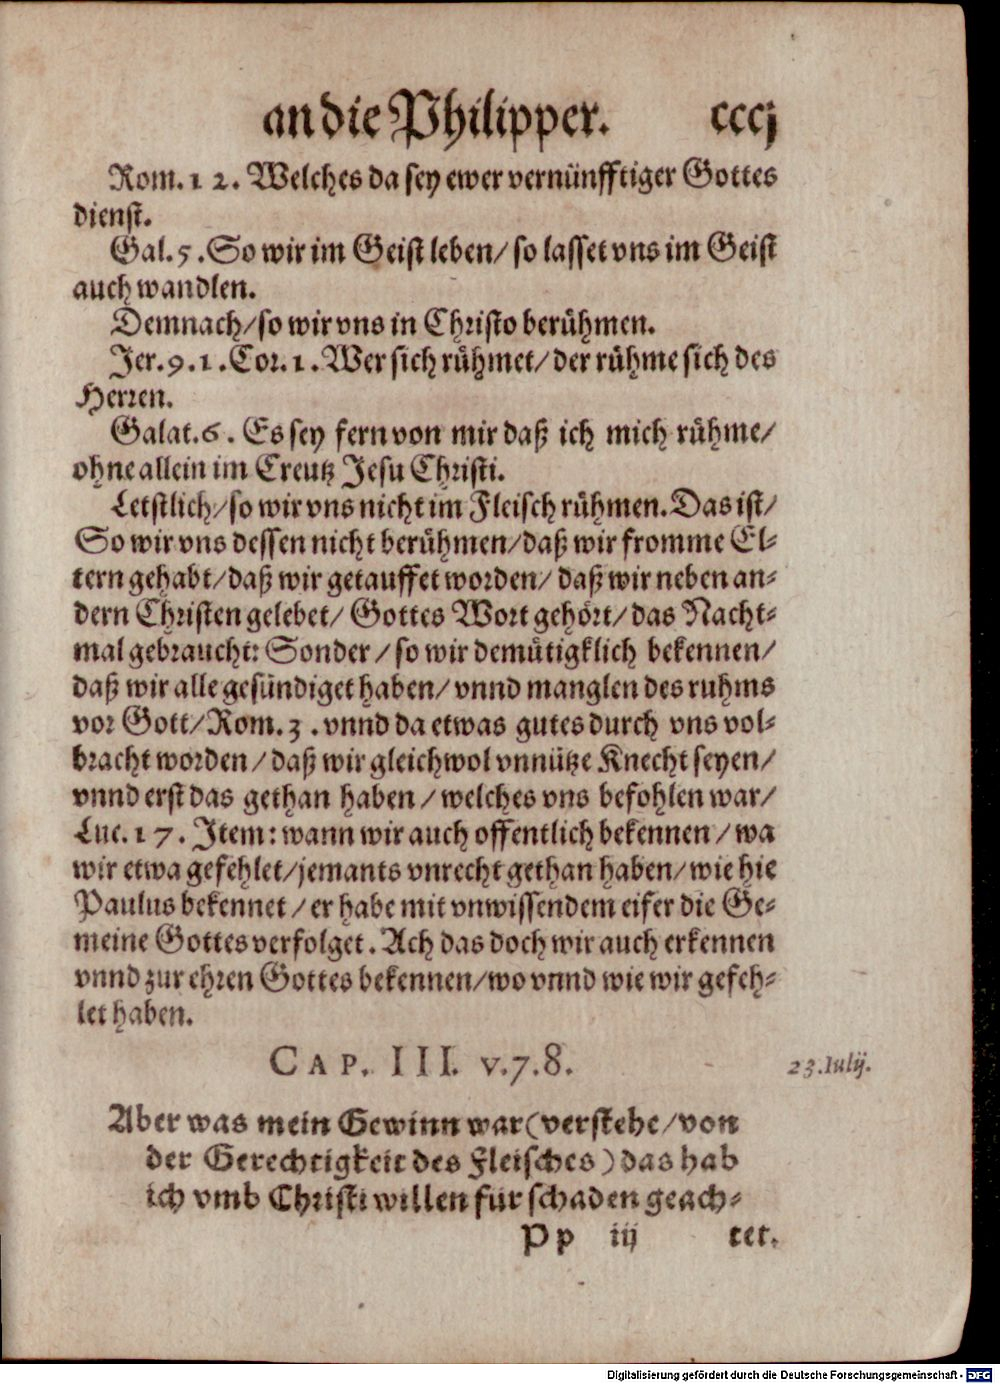 an die Philipper. cccj
Rom. 12. Welches da sey ewer vernünfftiger Gottes
dienst.
Gal. 5. So wir im Geist leben/ so lasset vns im Geist
auch wandlen.
Demnach/ so wir vns in Christo berůhmen.
Jer. 9. 1. Cor. 1. Wer sich růhmet/ der růhme sich des
Herren.
Galat. 6. Es sey fern von mir daß ich mich růhme/
ohne allein im Creutz Jesu Christi.
Letstlich/ so wir vns nicht im Fleisch růhmen. Das ist/
So wir vns dessen nicht berůhmen/ daß wir fromme El-
tern gehabt/ daß wir getauffet worden/ daß wir neben an-
dern Christen gelebet/ Gottes Wort gehört/ das Nacht-
mal gebraucht: Sonder/ so wir demůtigklich bekennen/
daß wir alle gesündiget haben/ vnnd manglen des ruhms
vor Gott/ Rom. 3. vnnd da etwas gutes durch vns vol-
bracht worden/ daß wir gleichwol vnnütze Knecht seyen/
vnnd erst das gethan haben/ welches vns befohlen war/
Luc. 17. Item: wann wir auch offentlich bekennen/ wa
wir etwa gefehlet/ jemants vnrecht gethan haben/ wie hie
Paulus bekennet/ er habe mit vnwissendem eifer die Ge-
meine Gottes verfolget. Ach das doch wir auch erkennen
vnnd zur ehren Gottes bekennen/ wo vnnd wie wir gefeh-
let haben.
CAP. III. v. 7. 8. 23. Iulij.
Aber was mein Gewinn war (verstehe/ von
der Gerechtigkeit des Fleisches) das hab
ich vmb Christi willen für schaden geach-
Pp iij tet.
Digitalisierung gefördert durch die Deutsche Forschungsgemeinschaft - DFG